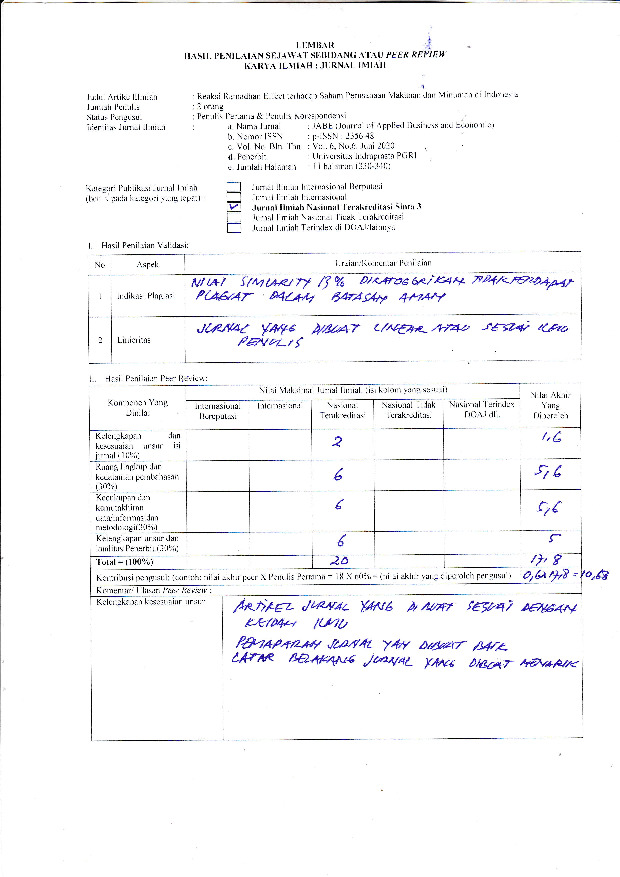 LEMBAR
HASIL PENILAIAN SEJAWAT SEBIDANG ATAU PEER REVIEW
KARYA ILMIAH : JURNAL IMIAH
Judul Artikel Ilmiah : Reaksi Ramadhan Effect terhadap Saham Perusahaan Makanan dan Minuman di Indonesia
Jumlah Penulis : 2 orang
Status Pengusul : Penulis Pertama & Penulis Korespondensi
Identitas Jurnal Ilmiah : a. Nama Jurnal : JABE (Journal of Applied Business and Economic)
b. Nomor ISSN : p-ISSN : 2356-48
c. Vol. No. Bln. Thn : Vol. 6, No.6. Juni 2020
d. Penerbit : Universitas Indraprasta PGRI
e. Jumlah Halaman : 11 halaman (330-340)
Kategori Publikasi Jurnal Imiah
(beri ✓ pada kategori yang tepat)
Jurnal Ilmiah Internasional Bereputasi
Jurnal Ilmiah Internasional
✓ Jurnal Ilmiah Nasional Terakreditasi Sinta 3
Jurnal Ilmiah Nasional Tidak Terakreditasi
Jurnal Ilmiah Terindex di DOAJ/lainnya
I. Hasil Penilaian Validasi:
No Aspek Uraian/Komentar Penilaian
1 Indikasi Plagiasi NILAI SIMILARITY 13% DIKATEGORIKAN TIDAK TERDAPAT
PLAGIAT DALAM BATASAN AMAN
2 Linieritas JURNAL YANG DIBUAT LINEAR ATAU SESUAI ILMU
PENULIS
II. Hasil Penilaian Peer Review:
Komponen Yang Dinilai
Nilai Maksimal Jurnal Ilmiah (isi kolom yang sesuai)
Nilai Akhir Yang Diperoleh
Internasional Bereputasi Internasional Nasional Terakreditasi Nasional Tidak Terakreditasi Nasional Terindex DOAJ dll.
Kelengkapan dan kesesuaian unsur isi jurnal (10%) 2 1,6
Ruang lingkup dan kedalaman pembahasan (30%) 6 5,6
Kecukupan dan kemutakhiran data/informasi dan metodologi(30%) 6 5,6
Kelengkapan unsur dan kualitas Penerbit (30%) 6 5
Total = (100%) 20 17,8
Kontribusi pengusul: (contoh: nilai akhir peer X Penulis Pertama = 18 X 60% = (nilai akhir yang diperoleh pengusul) 0,6x17,8 = 10,68
Komentar/ Ulasan Peer Review :
Kelengkapan kesesuaian unsur ARTIKEL JURNAL YANG DIBUAT SESUAI DENGAN
KAIDAH ILMU
PEMAPARAN JURNAL YAN DIBUAT BAIK
LATAR BELAKANG JURNAL YANG DIBUAT MENARIK